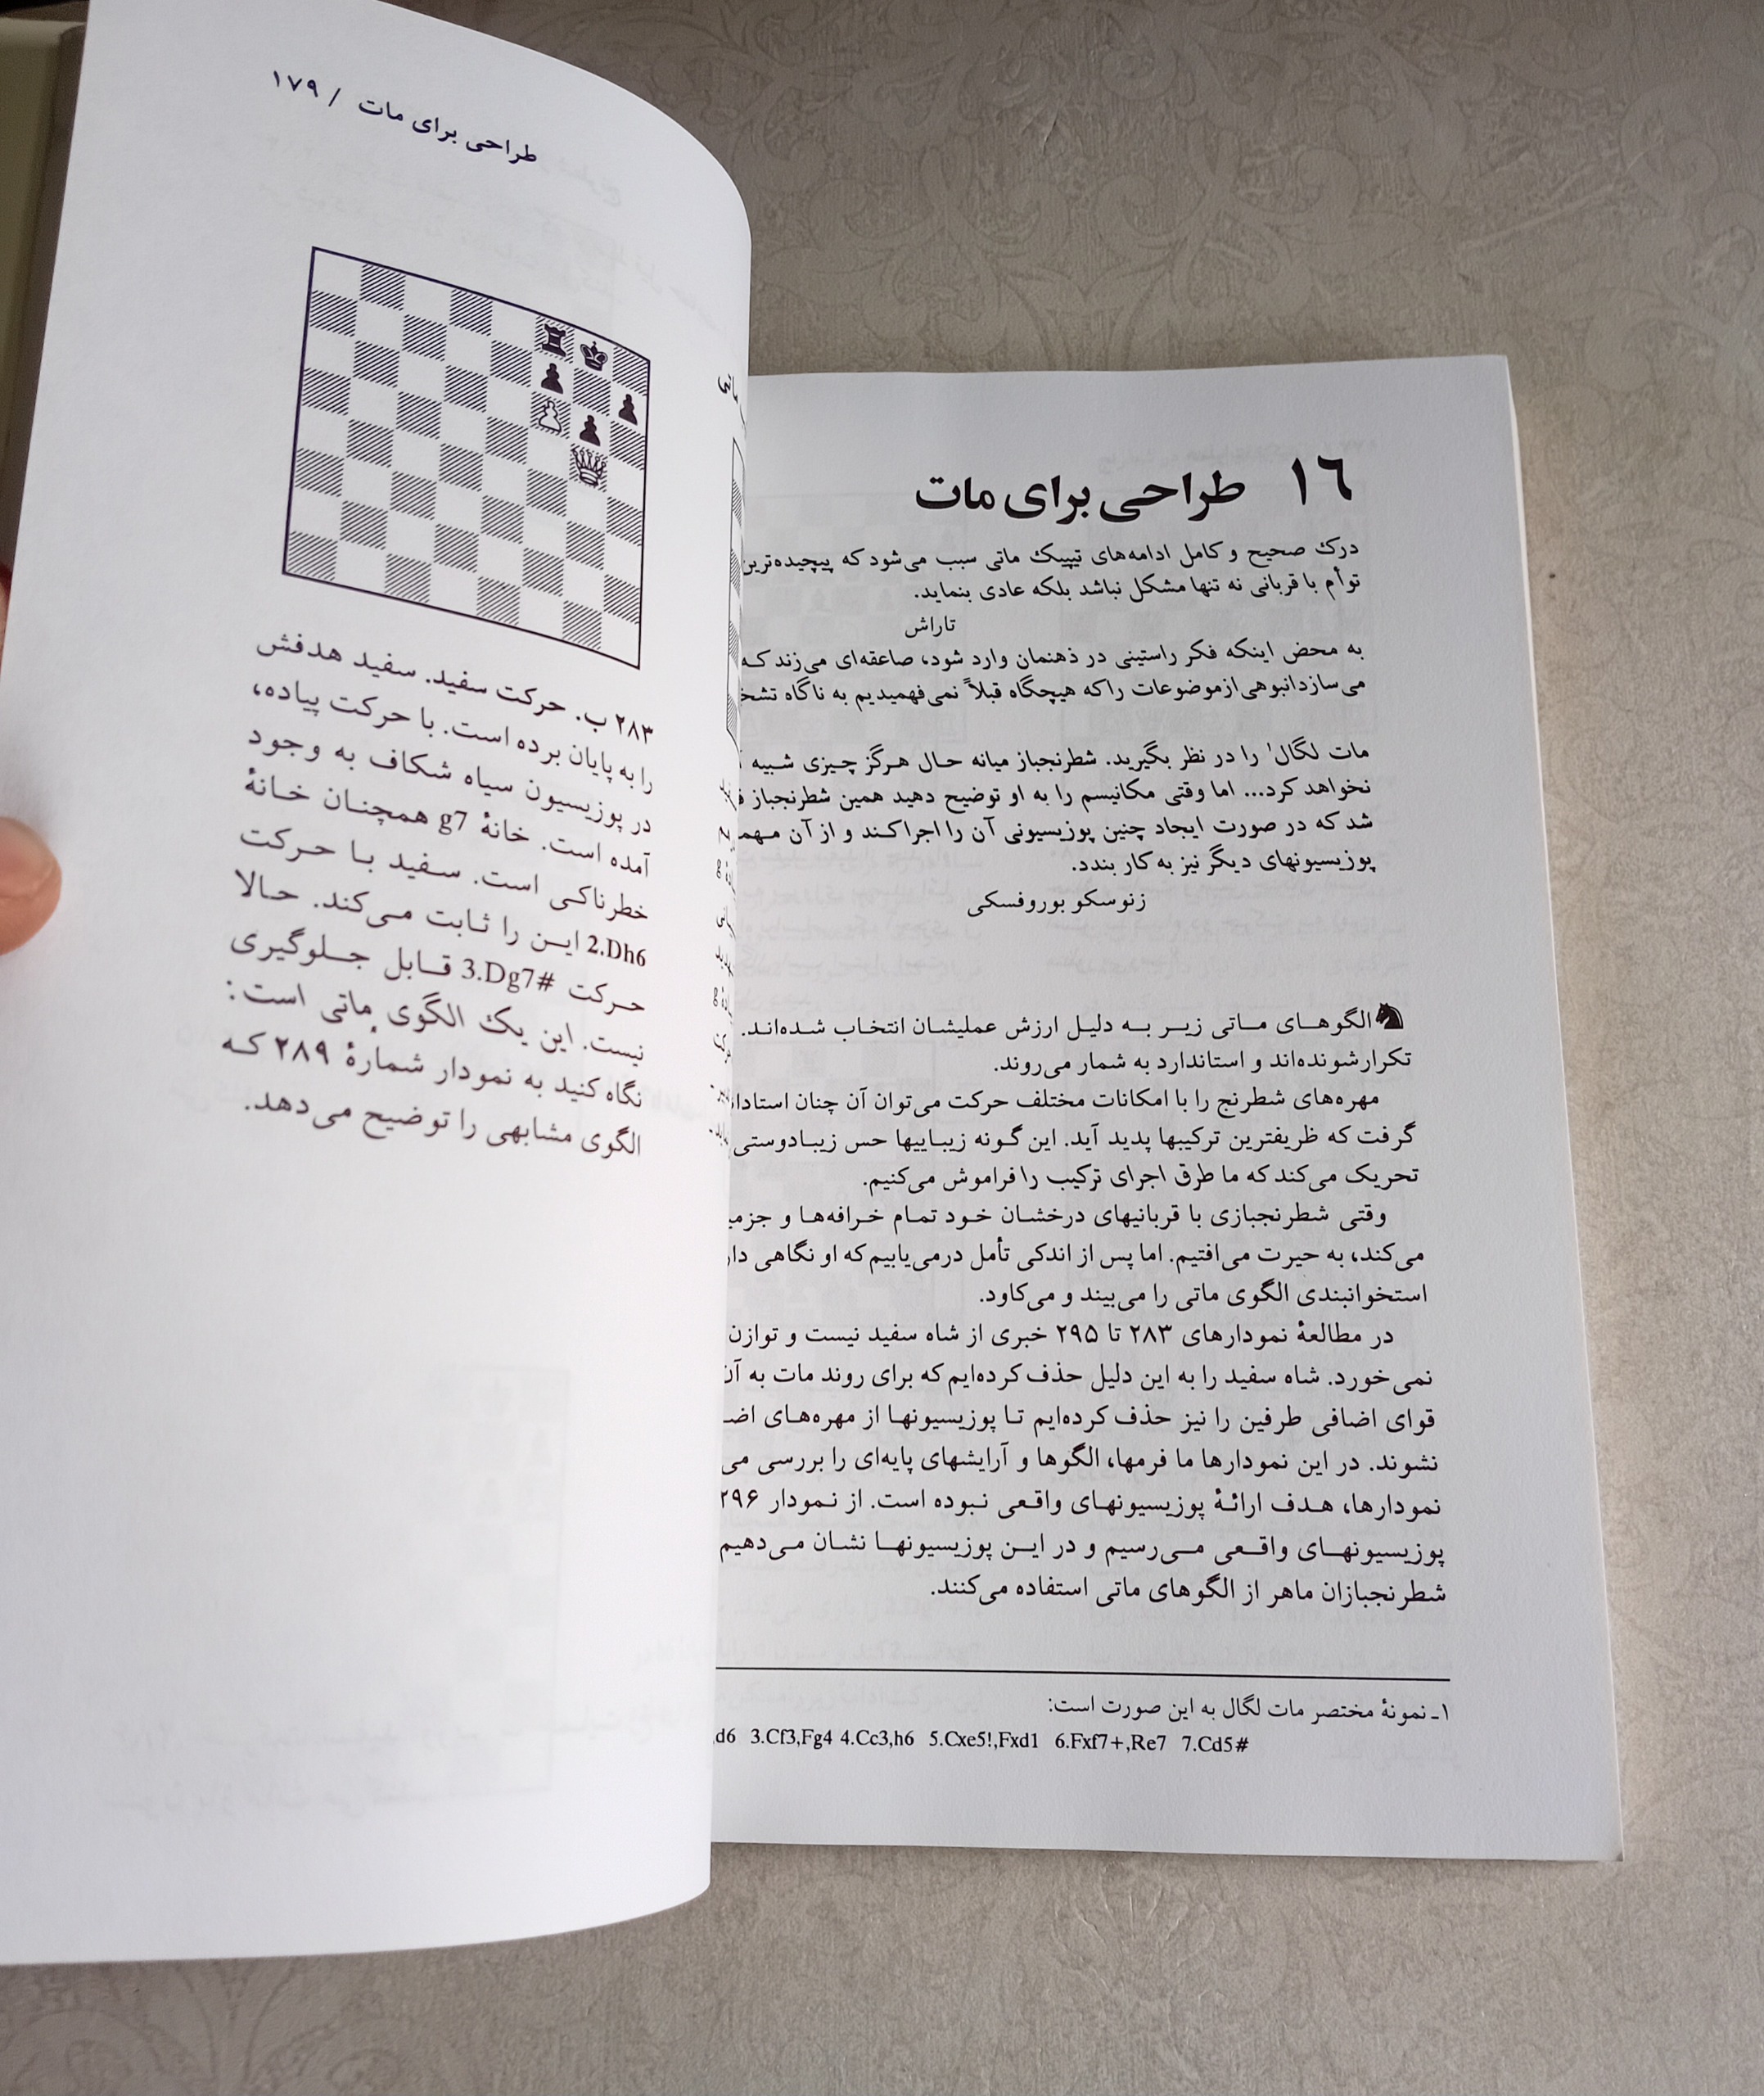 ۱۶ طراحی برای مات
درک صحیح و کامل ادامه‌های تیپیک ماتی سبب می‌شود که پیچیده‌ترین
توأم با قربانی نه تنها مشکل نباشد بلکه عادی بنماید.
تاراش
به محض اینکه فکر راستینی در ذهنمان وارد شود، صاعقه‌ای می‌زند که
می‌سازد انبوهی از موضوعات را که هیچگاه قبلاً نمی‌فهمیدیم به ناگاه
مات لگال۱ را در نظر بگیرید. شطرنجباز میانه حال هرگز چیزی شبیه
نخواهد کرد... اما وقتی مکانیسم را به او توضیح دهید همین شطرنجباز
شد که در صورت ایجاد چنین پوزیسیونی آن را اجرا کند و از آن
پوزیسیونهای دیگر نیز به کار بندد.
زنوسکو بوروفسکی
الگوهای ماتی زیر به دلیل ارزش عملیشان انتخاب شده‌اند.
تکرارشونده‌اند و استاندارد به شمار می‌روند.
مهره‌های شطرنج را با امکانات مختلف حرکت می‌توان آن چنان
گرفت که ظریفترین ترکیبها پدید آید. این گونه زیباییها حس زیبادوستی
تحریک می‌کند که ما طرق اجرای ترکیب را فراموش می‌کنیم.
وقتی شطرنجبازی با قربانیهای درخشان خود تمام خرافه‌ها و
می‌کند، به حیرت می‌افتیم. اما پس از اندکی تأمل درمی‌یابیم که او نگاهی
استخوانبندی الگوی ماتی را می‌بیند و می‌کاود.
در مطالعهٔ نمودارهای ۲۸۳ تا ۲۹۵ خبری از شاه سفید نیست و توازن
نمی‌خورد. شاه سفید را به این دلیل حذف کرده‌ایم که برای روند مات به
قوای اضافی طرفین را نیز حذف کرده‌ایم تا پوزیسیونها از مهره‌های
نشوند. در این نمودارها ما فرمها، الگوها و آرایشهای پایه‌ای را بررسی
نمودارها، هدف ارائهٔ پوزیسیونهای واقعی نبوده است. از نمودار ۲۹۶
پوزیسیونهای واقعی می‌رسیم و در این پوزیسیونها نشان می‌دهیم
شطرنجبازان ماهر از الگوهای ماتی استفاده می‌کنند.
۱ـ نمونهٔ مختصر مات لگال به این صورت است:
d6 3.Cf3,Fg4 4.Cc3,h6 5.Cxe5!,Fxd1 6.Fxf7+,Re7 7.Cd5#
طراحی برای مات / ۱۷۹
۲۸۳ ب. حرکت سفید. سفید هدفش
را به پایان برده است. با حرکت پیاده،
در پوزیسیون سیاه شکاف به وجود
آمده است. خانهٔ g7 همچنان خانهٔ
خطرناکی است. سفید با حرکت
2.Dh6 این را ثابت می‌کند. حالا
حرکت 3.Dg7# قابل جلوگیری
نیست. این یک الگوی ماتی است:
نگاه کنید به نمودار شمارهٔ ۲۸۹ که
الگوی مشابهی را توضیح می‌دهد.